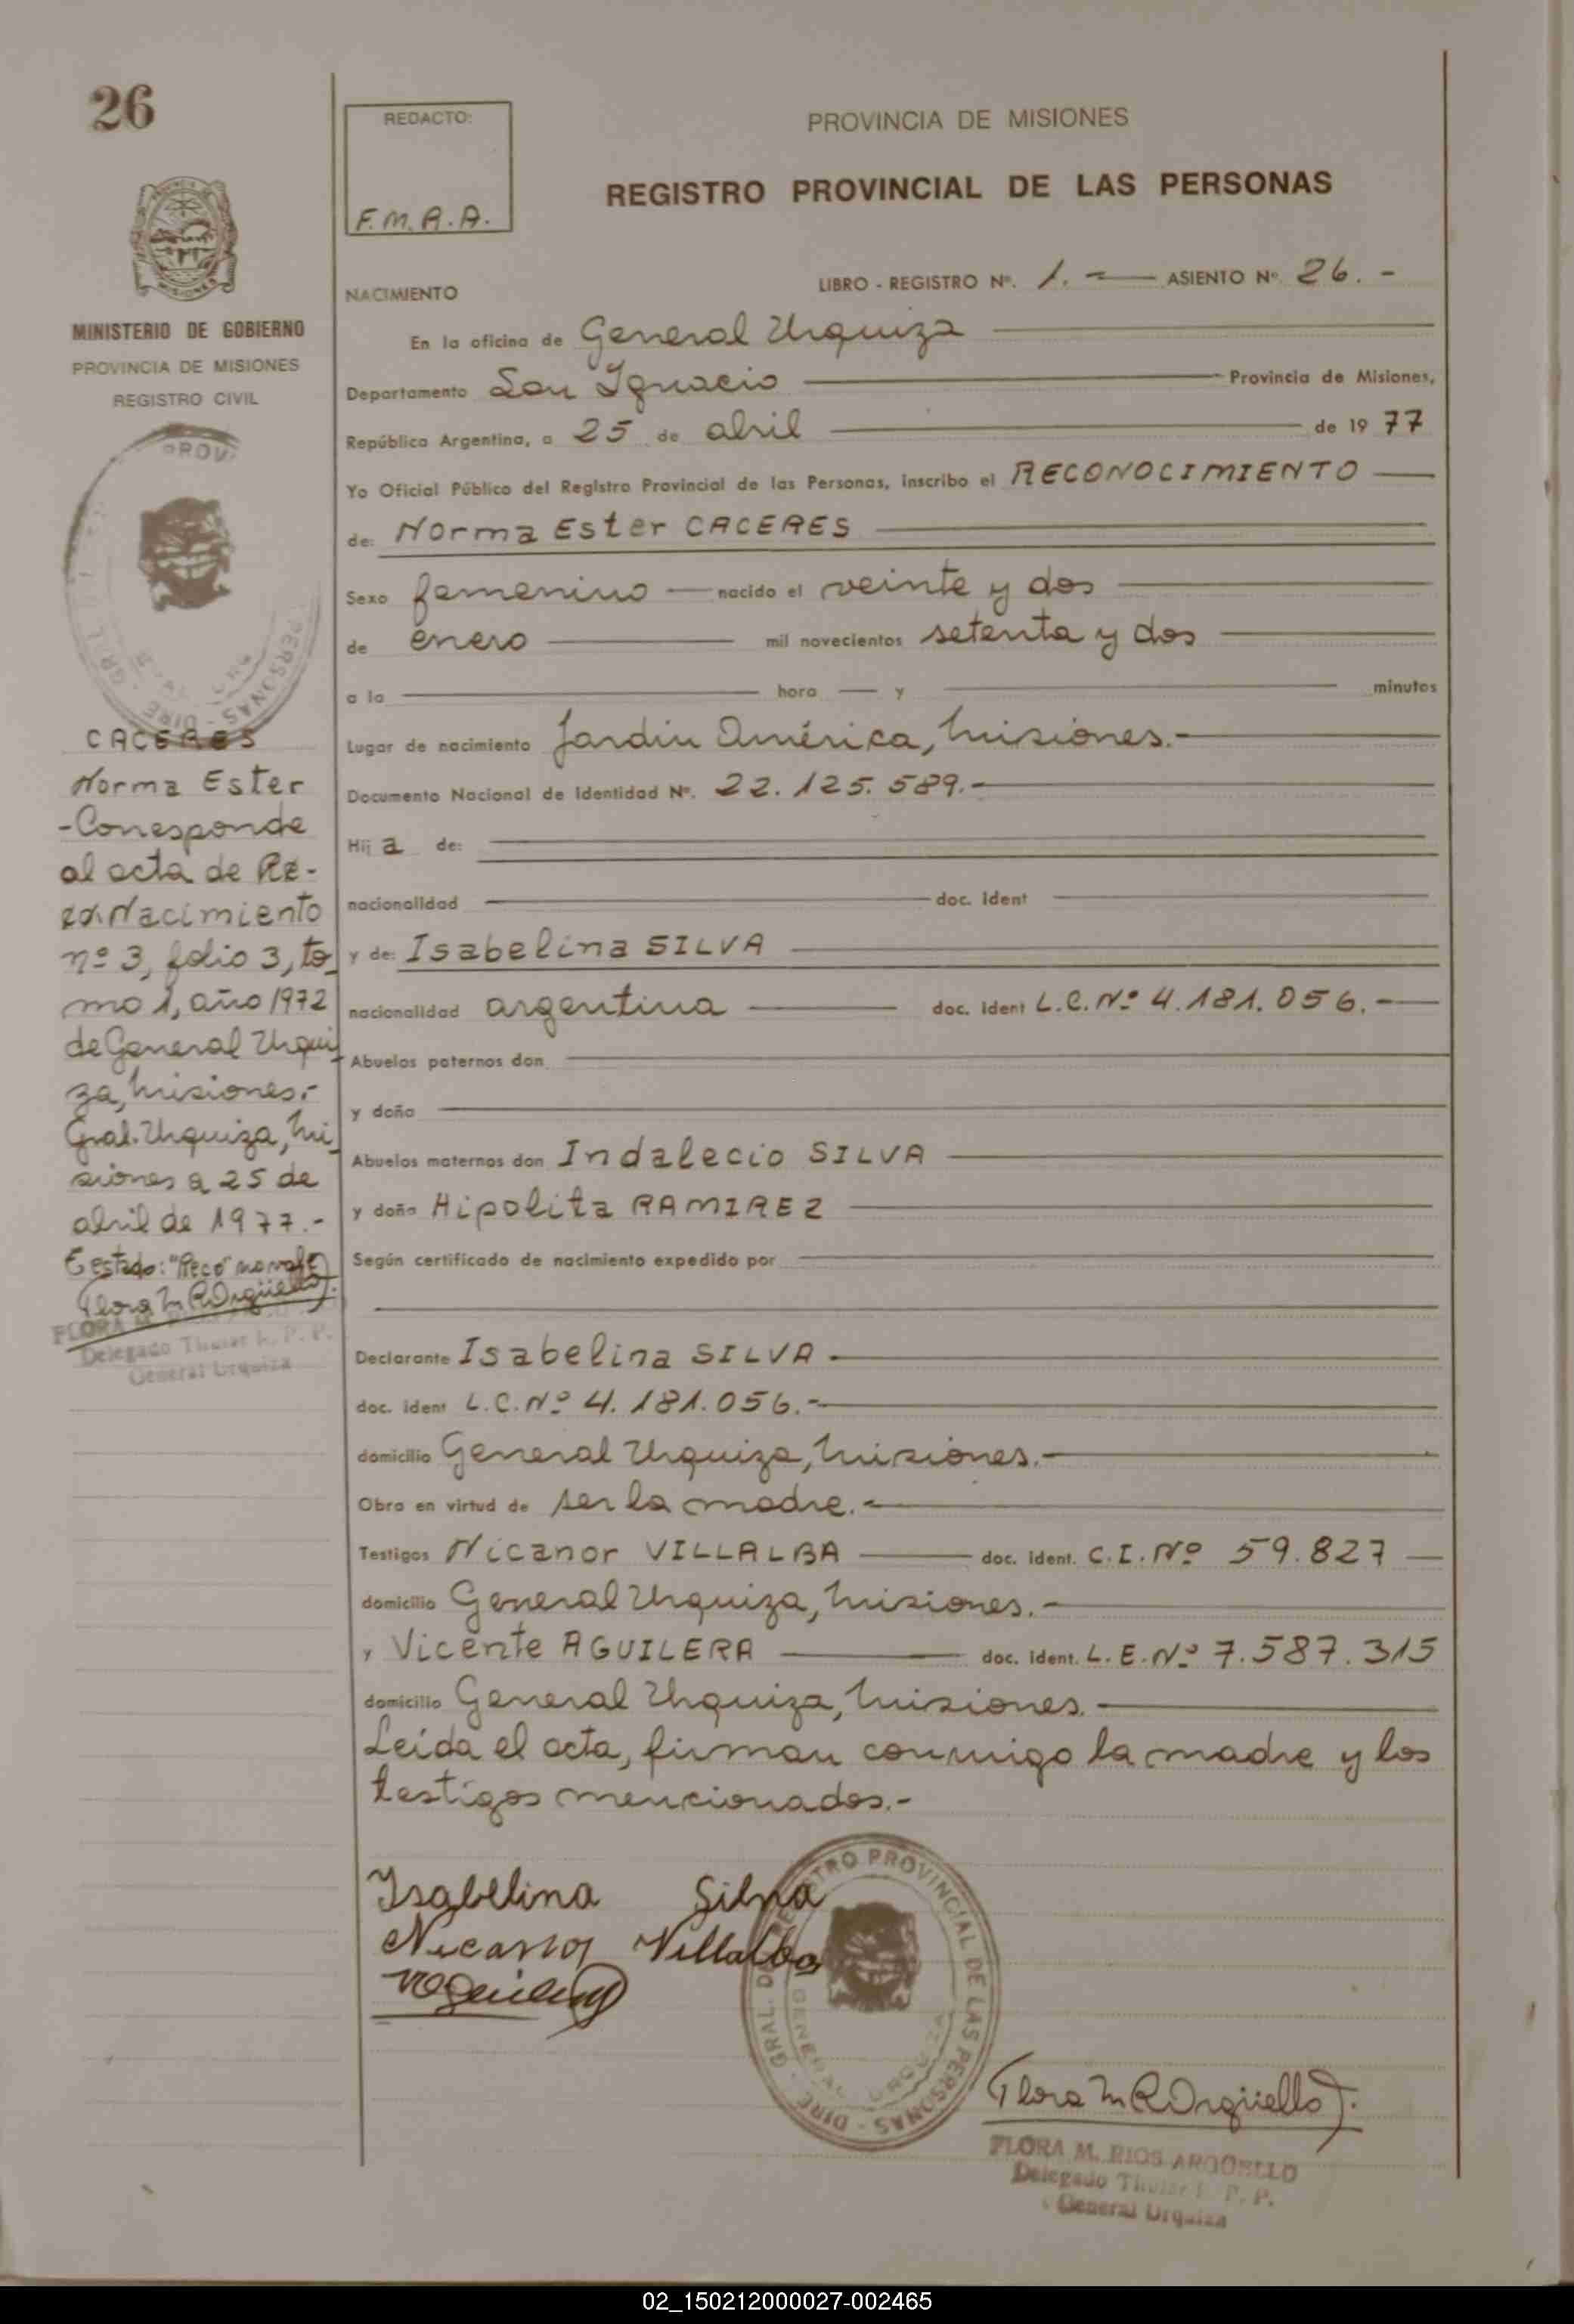 26
REDACTO:
F.M.R.A.
PROVINCIA DE MISIONES
REGISTRO PROVINCIAL DE LAS PERSONAS
MINISTERIO DE GOBIERNO
PROVINCIA DE MISIONES
REGISTRO CIVIL
NACIMIENTO
LIBRO - REGISTRO Nº. 1.- ASIENTO Nº 26.-
En la oficina de General Urquiza
Departamento San Ignacio Provincia de Misiones,
República Argentina, a 25 de abril de 1977
Yo Oficial Público del Registro Provincial de las Personas, inscribo el RECONOCIMIENTO
de: Norma Ester CACERES
Sexo femenino nacido el veinte y dos
de enero mil novecientos setenta y dos
a la hora y minutos
Lugar de nacimiento Jardin América, Misiones.-
Documento Nacional de Identidad Nº. 22.125.589.-
Hija de:
nacionalidad doc. ident
y de: Isabelina SILVA
nacionalidad argentina doc. ident L.C.Nº 4.181.056.-
Abuelos paternos don
y doña
Abuelos maternos don Indalecio SILVA
y doña Hipolita RAMIREZ
Según certificado de nacimiento expedido por
Declarante Isabelina SILVA.
doc. ident L.C.Nº 4.181.056.-
domicilio General Urquiza, Misiones.-
Obra en virtud de ser la madre.-
Testigos Nicanor VILLALBA doc. ident. C.I.Nº 59.827
domicilio General Urquiza, Misiones.-
y Vicente AGUILERA doc. ident. L.E.Nº 7.587.315
domicilio General Urquiza, Misiones.-
Leida el acta, firman conmigo la madre y los
testigos mencionados.-
CACERES
Norma Ester
-Corresponde
al acta de Re-
Nacimiento
nº 3, folio 3, to-
mo 1, año 1972
de General Urqui-
za, Misiones.-
Gral. Urquiza, Mi-
siones a 25 de
abril de 1977.-
Testado: "Reco" no vale
Flora M R Argüello
FLORA M.
Delegado Titular R. P. P.
General Urquiza
Isabelina Silva
Nicanor Villalba
DIRE. GRAL. DEL REGISTRO PROVINCIAL DE LAS PERSONAS
GENERAL URQUIZA
Flora M R Argüello
FLORA M. RIOS ARGUELLO
Delegado Titular R. P. P.
General Urquiza
02_150212000027-002465